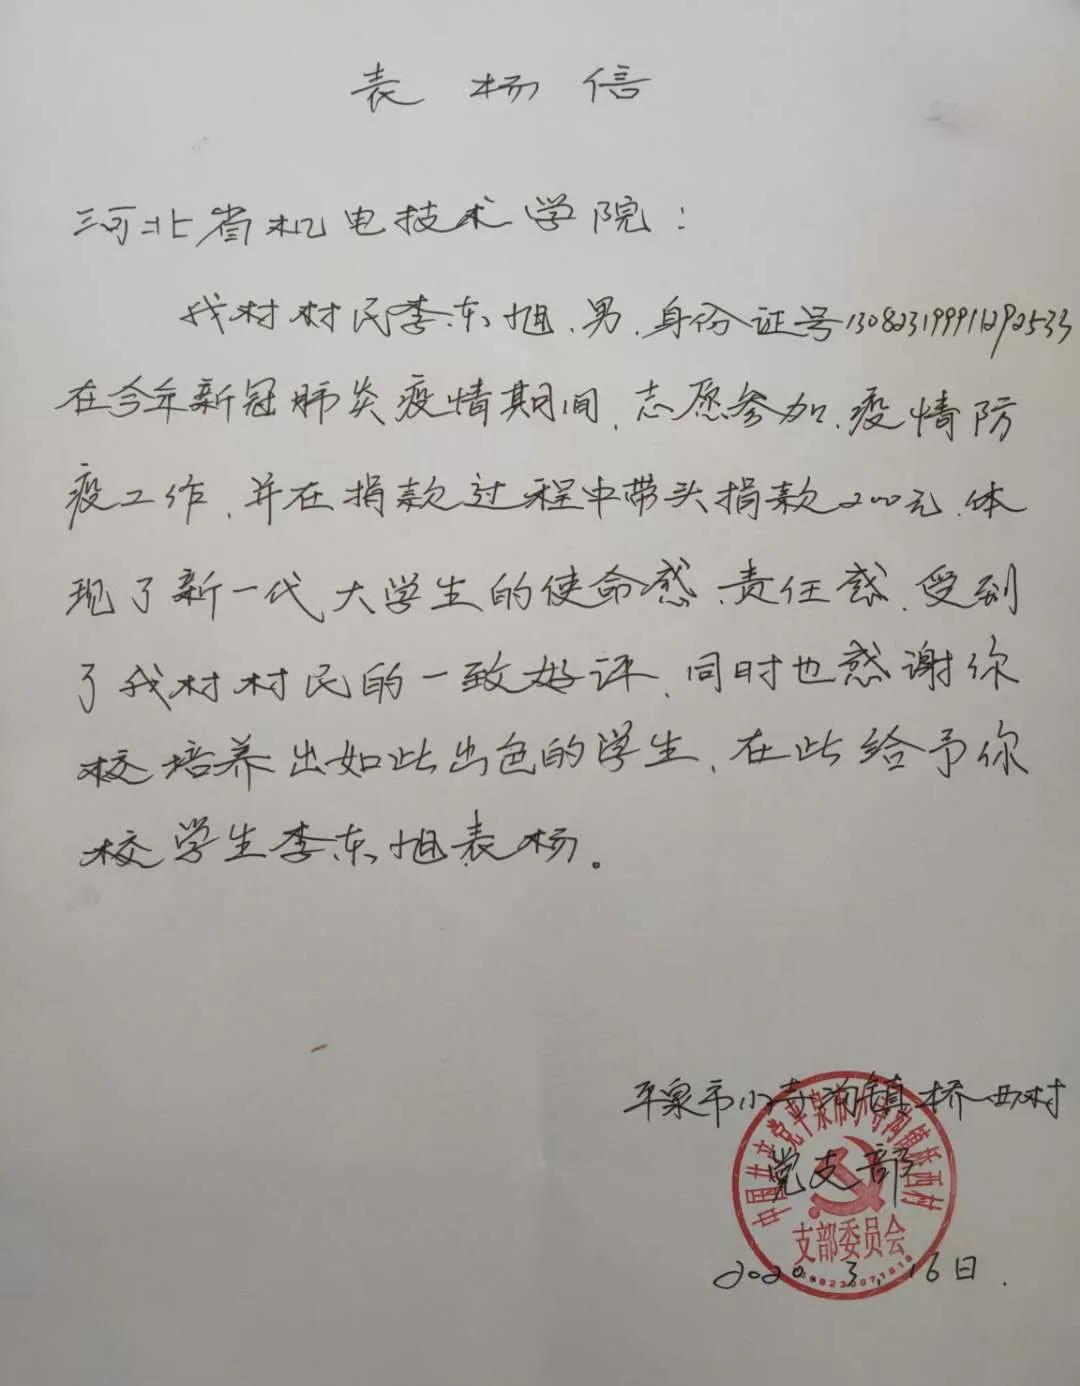 表扬信
河北省机电技术学院：
我村村民李东旭、男、身份证号130823199911292533
在今年新冠肺炎疫情期间，志愿参加，疫情防
疫工作，并在捐款过程中带头捐款200元，体
现了新一代大学生的使命感、责任感，受到
了我村村民的一致好评，同时也感谢你
校培养出如此出色的学生，在此给予你
校学生李东旭表扬。
平泉市小寺沟镇桥西村
党支部
2020.3.16日.
中国共产党平泉市小寺沟镇桥西村
支部委员会